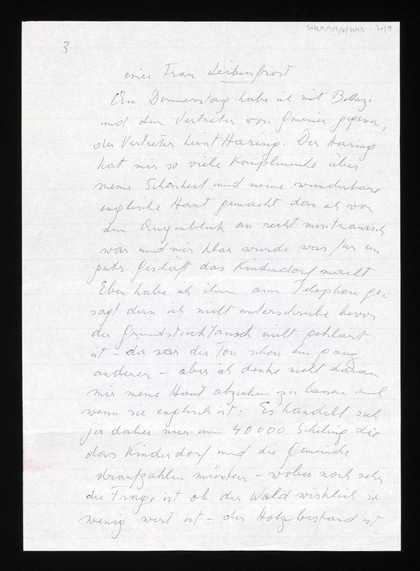 3
einer Frau Leibenfrost
Am Donnerstag habe ich mit
und dem Vertreter von Gmeiner gegessen,
der Vertreter heisst Haring. Der Haring
hat mir so viele Komplimente über
meine Schönheit und meine wunderbare
englische Haut gemacht dass ich von
dem Augenblick an recht misstrauisch
war und mir klar wurde was für ein
gutes Geschäft das Kinderdorf macht
Eben habe ich ihm am Telephon ge-
sagt dass ich nicht unterschreibe bevor
der Grundstücktausch nicht geklärt
ist - da war der Ton schon ein ganz
anderer - aber ich denke nicht daran
mir meine Haut abziehen zu lassen auch
wenn sie englisch ist. Es handelt sich
ja dabei nur um 40000 Schilling die
das Kinderdorf und die Gemeinde
draufzahlen müssten - wobei noch sehr
die Frage ist ob der Wald wirklich so
wenig wert ist - der Holzbestand ist